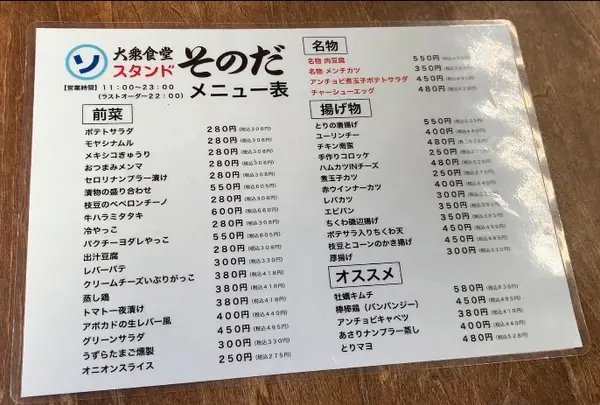 ソ
大衆食堂
スタンド
そのだ
【営業時間】11:00〜23:00
(ラストオーダー22:00)
メニュー表
前菜
ポテトサラダ 280円(税込308円)
モヤシナムル 280円(税込308円)
メキシコきゅうり 280円(税込308円)
おつまみメンマ 280円(税込308円)
セロリナンプラー漬け 280円(税込308円)
漬物の盛り合わせ 550円(税込605円)
枝豆のペペロンチーノ 280円(税込308円)
牛ハラミタタキ 600円(税込660円)
冷やっこ 280円(税込308円)
パクチーヨダレやっこ 550円(税込605円)
出汁豆腐 280円(税込308円)
レバーパテ 300円(税込330円)
クリームチーズいぶりがっこ 380円(税込418円)
蒸し鶏 380円(税込418円)
トマト一夜漬け 380円(税込418円)
アボカドの生レバー風 400円(税込440円)
グリーンサラダ 450円(税込495円)
うずらたまご燻製 300円(税込330円)
オニオンスライス 250円(税込275円)
名物
名物 肉豆腐 550円(税込605円)
名物 メンチカツ 350円(税込385円)
アンチョビ煮玉子ポテトサラダ 450円(税込495円)
チャーシューエッグ 480円(税込528円)
揚げ物
とりの唐揚げ 550円(税込605円)
ユーリンチー 400円(税込440円)
チキン南蛮 480円(税込528円)
手作りコロッケ 250円(税込275円)
ハムカツINチーズ 480円(税込528円)
煮玉子カツ 250円(税込275円)
赤ウインナーカツ 400円(税込440円)
レバカツ 300円(税込330円)
エビパン 350円(税込385円)
ちくわ磯辺揚げ 350円(税込385円)
ポテサラ入りちくわ天 450円(税込495円)
枝豆とコーンのかき揚げ 450円(税込495円)
厚揚げ 300円(税込330円)
オススメ
牡蠣キムチ 580円(税込638円)
棒棒鶏(バンバンジー) 450円(税込495円)
アンチョビキャベツ 380円(税込418円)
あさりナンプラー蒸し 400円(税込440円)
とりマヨ 480円(税込528円)